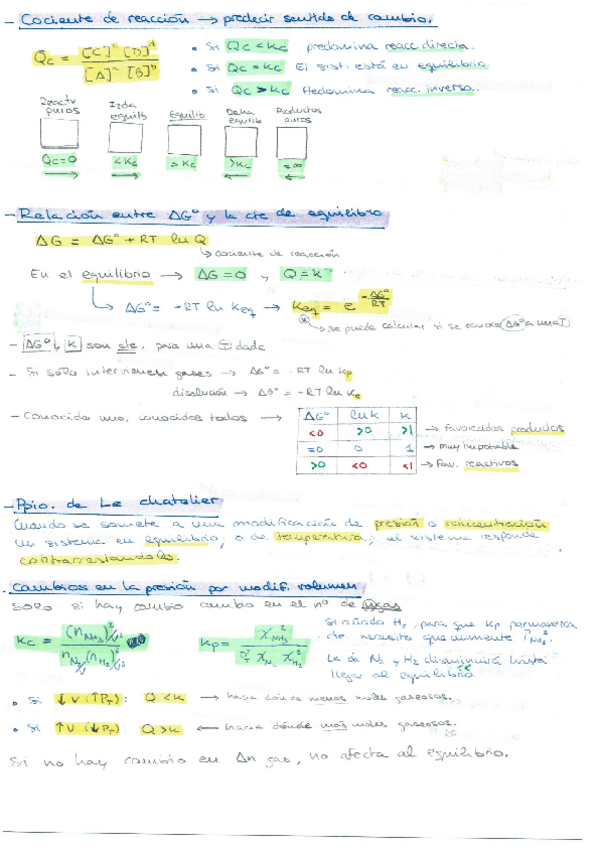 - Cociente de reacción → predecir sentido de cambio.
Qc = [C]^c [D]^d / [A]^a [B]^b
• Si Qc < Kc predomina reacc. directa.
• Si Qc = Kc El sist. está en equilibrio
• Si Qc > Kc Predomina reacc. inversa.
Reactv puros Izda equilib Equilib Dcha equilib Productos puros
Qc=0 <Kc = Kc >Kc = ∞
- Relación entre ΔGº y la cte de equilibrio
ΔG = ΔGº + RT ln Q
↳ cociente de reacción
En el equilibrio → ΔG=0 y Q=K
↳ ΔGº = -RT ln Keq → Keq = e^(-ΔGº/RT)
↳ se puede calcular si se conoce ΔGº a una T
- ΔGº y K son cte, para una T dada
- Si solo intervienen gases → ΔGº = -RT ln Kp
disolución → ΔGº = -RT ln Kc
- Conocido uno, conocidos todos →
ΔGº ln K K
<0 >0 >1 → favorecidos productos
=0 0 1 → muy improbable
>0 <0 <1 → Fav. reactivos
- Ppio. de Le chatelier
Cuando se somete a una modificación de presión o concentración
un sistema en equilibrio, o de temperatura, el sistema responde
contrarrestandolo.
. Cambios en la presión por modif. volumen
Solo si hay cambio cambio en el nº de
Kc = (n NH3)²/V² / n N2/V (n H2)³/V³
Kp = χ²NH3 / P²T χN2 χ³H2
Si añado H2, para que Kp permanezca
cte, necesito que aumente P NH3.
La de N2 y H2 disminuirá hasta
llegar al equilibrio.
• Si ↓V (↑PT): Q < K → hacia donde menos moles gaseosos.
• Si ↑V (↓PT): Q > K ← hacia dónde más moles gaseosos.
Si no hay cambio en Δn gas, no afecta al equilibrio.